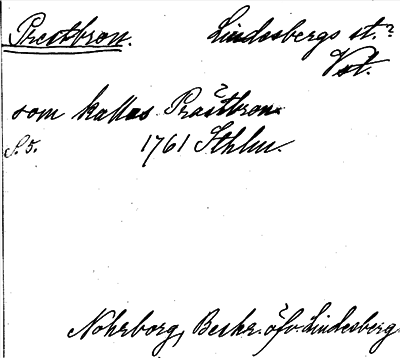 Prestbron. Lindesbergs st.?
Vst.
som kallas Prästbron
S. 5. 1761 Sthlm.
Nohrborg, Beskr. öfv. Lindesberg